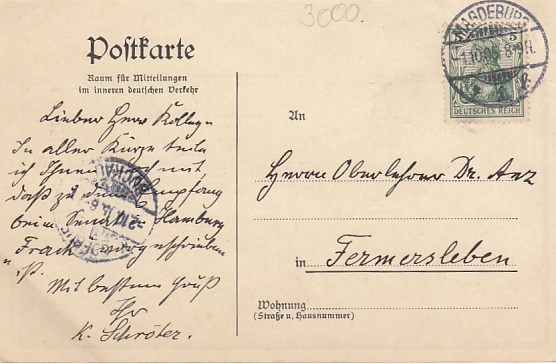 3000.
Postkarte
Raum für Mitteilungen
im inneren deutschen Verkehr
Lieber Herr Kollege
In aller Kürze teile
ich Ihnen noch mit,
daß zu dem Empfang
beim Senat in Hamburg
Frack vorgeschrieben
ist.
Mit bestem Gruß
Ihr
K. Schröter.
MAGDEBURG
8-9N.
5
DEUTSCHES REICH
BUCKAU
An
Herrn Oberlehrer Dr.
in Fermersleben
Wohnung
(Straße u. Hausnummer)